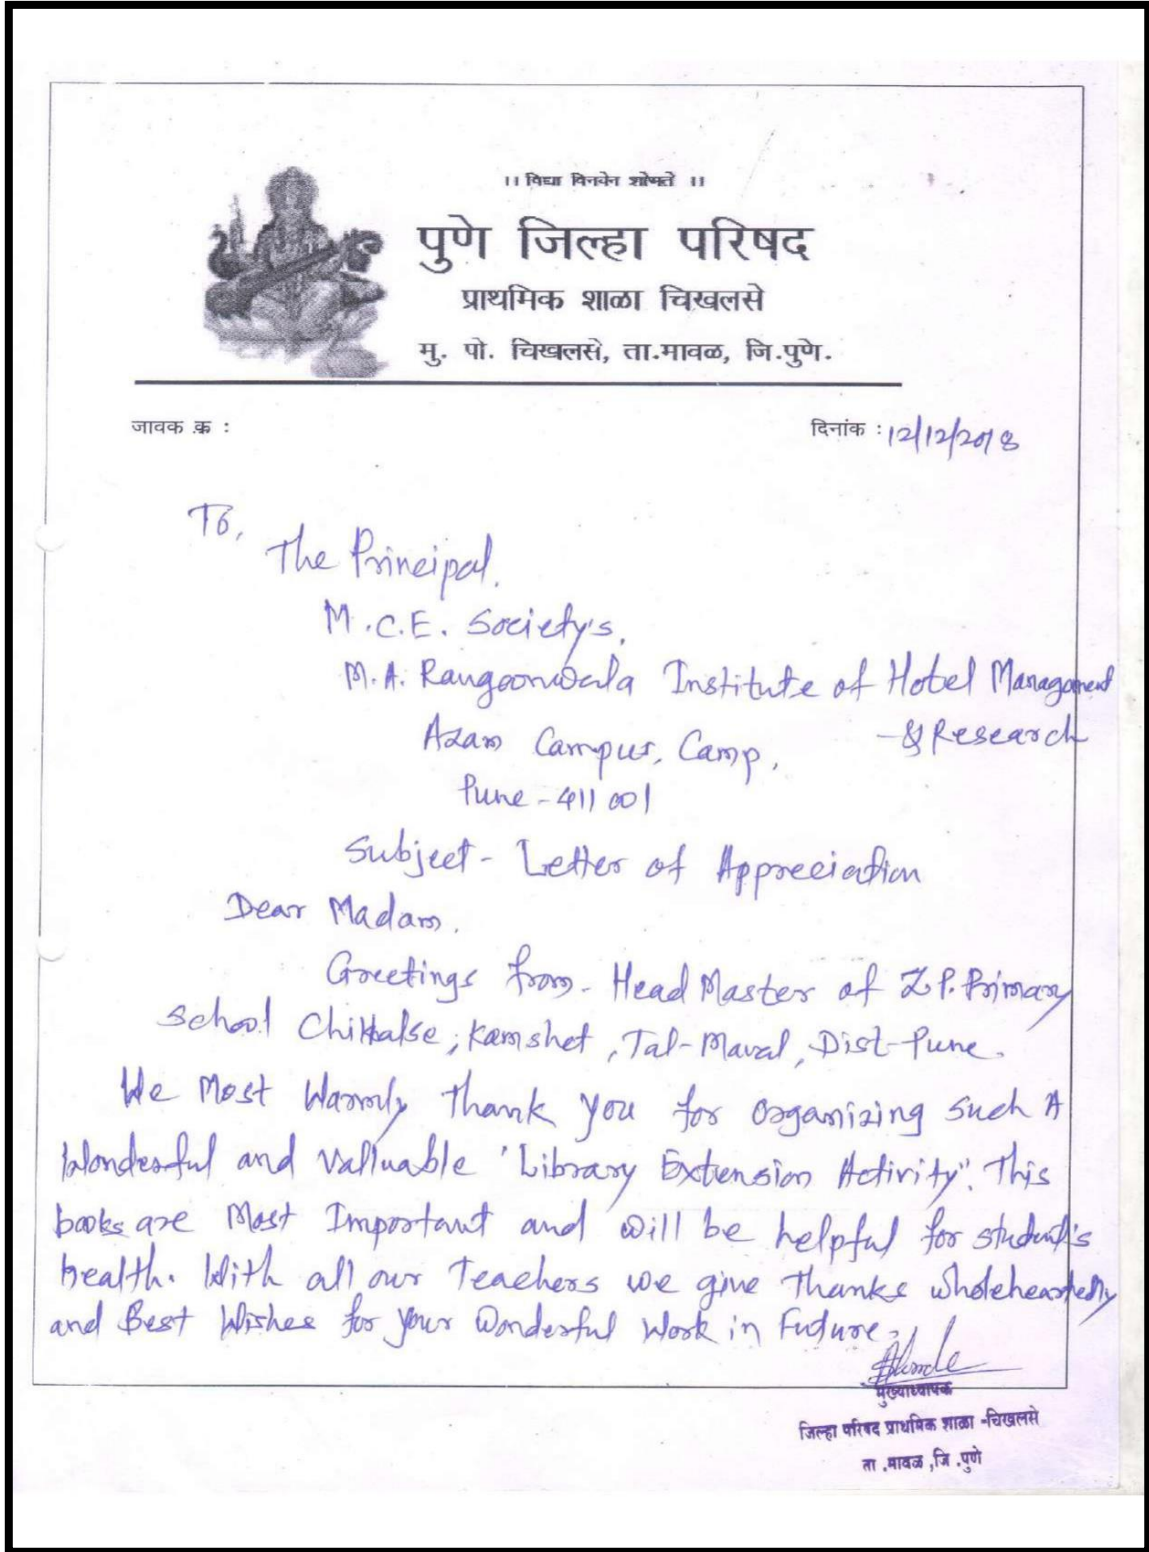 ।। विद्या विनयेन शोभते ।।
पुणे जिल्हा परिषद
प्राथमिक शाळा चिखलसे
मु. पो. चिखलसे, ता.मावळ, जि.पुणे.
जावक क्र :
दिनांक : 12/12/2018
To,
The Principal.
M.C.E. Society's,
M.A. Rangoonwala Institute of Hotel Management
& Research
Azam Campus, Camp,
Pune - 411 001
Subject - Letter of Appreciation
Dear Madam.
Greetings from - Head Master of Z.P. Primary
School Chikhalse, Kamshet, Tal-Maval, Dist-Pune.
We Most Warmly Thank you for organizing such A
Wonderful and valluable 'Library Extension Activity". This
books are Most Important and will be helpful for student's
health. With all our Teachers we give thanks wholeheartedly
and Best Wishes for your wonderful Work in Future.
मुख्याध्यापक
जिल्हा परिषद प्राथमिक शाळा -चिखलसे
ता .मावळ ,जि .पुणे